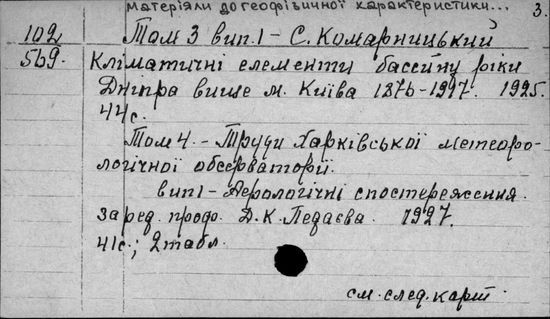 матеріяли до геофізичної характеристики... 3.
102 Том 3 вип. 1 - С. Комарницький
569. Кліматичні елементи бассину ріки
Дніпра вище м. Київа 1876-1917. 1925.
44с.
Том 4. - Труди Харківської метеоро-
логічної обсерваторії.
вип 1 - Аерологічні спостереження.
за ред. проф. Д. К. Педаєва. 1927.
41с.; 2 табл.
см. след. карт.